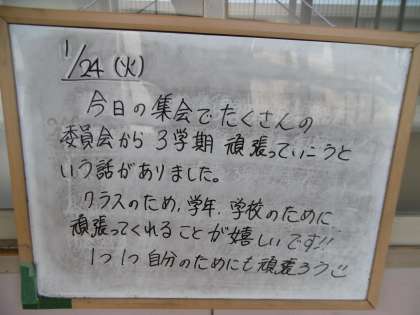 1/24(火)
今日の集会でたくさんの
委員会から3学期 頑張っていこうと
いう話がありました。
クラスのため,学年,学校のために
頑張ってくれることが嬉しいです!!
1つ1つ自分のためにも頑張ろう